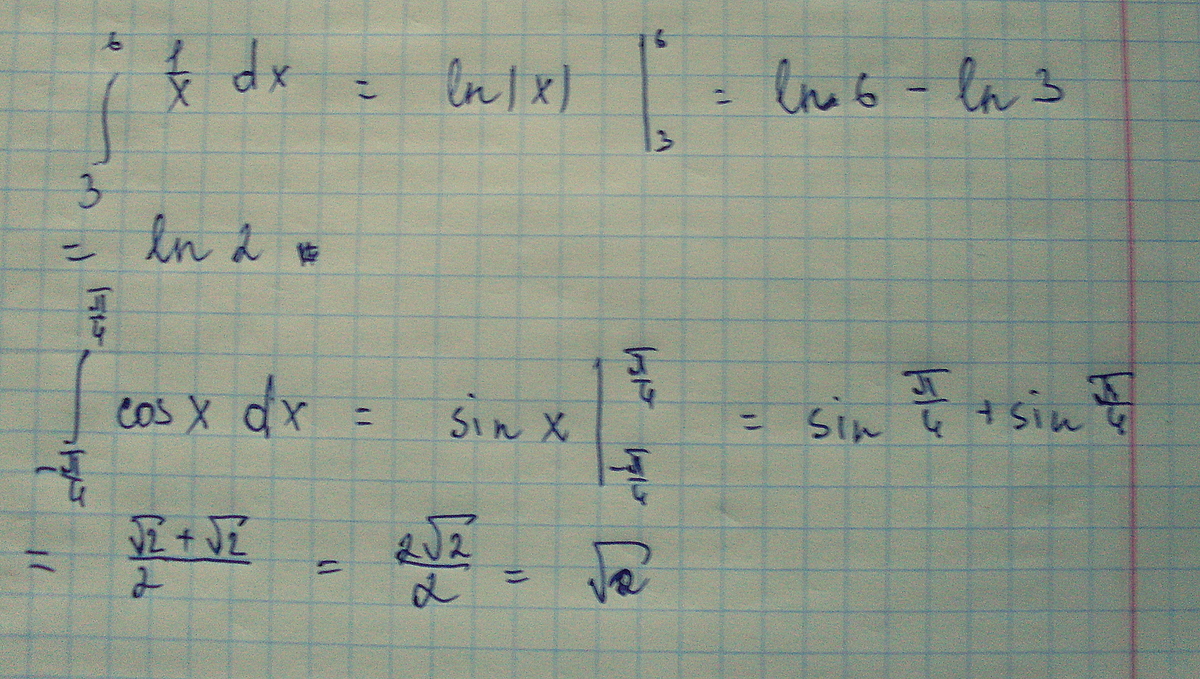 ∫₃⁶ 1/x dx = ln|x| |₃⁶ = ln 6 - ln 3
= ln 2
∫_{-π/4}^{π/4} cos x dx = sin x |_{-π/4}^{π/4} = sin π/4 + sin π/4
= (√2 + √2)/2 = 2√2/2 = √2